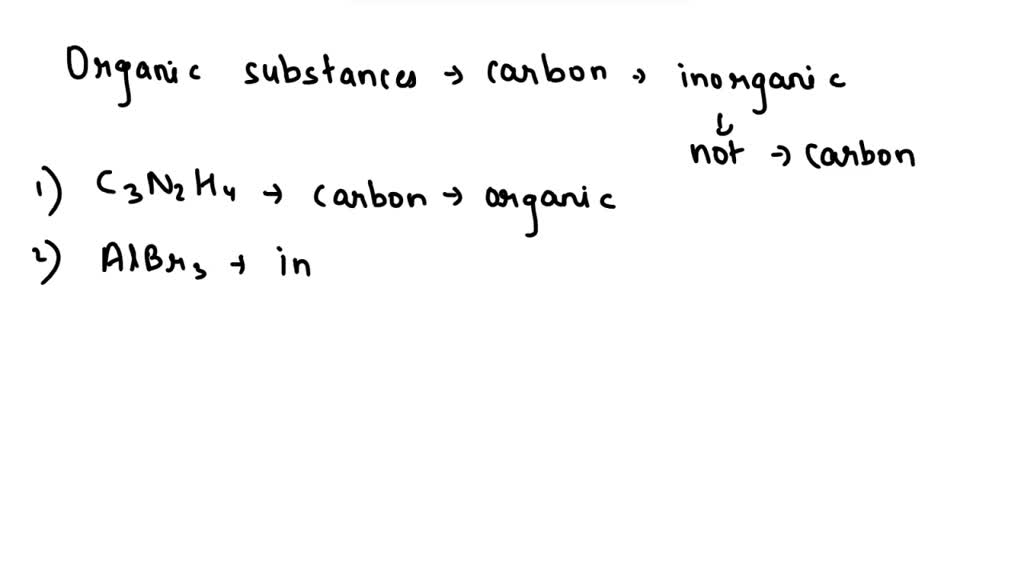 Organic substances → carbon → inorganic
↓
not → carbon
1) C3N2H4 → carbon → organic
2) AlBr3 → in